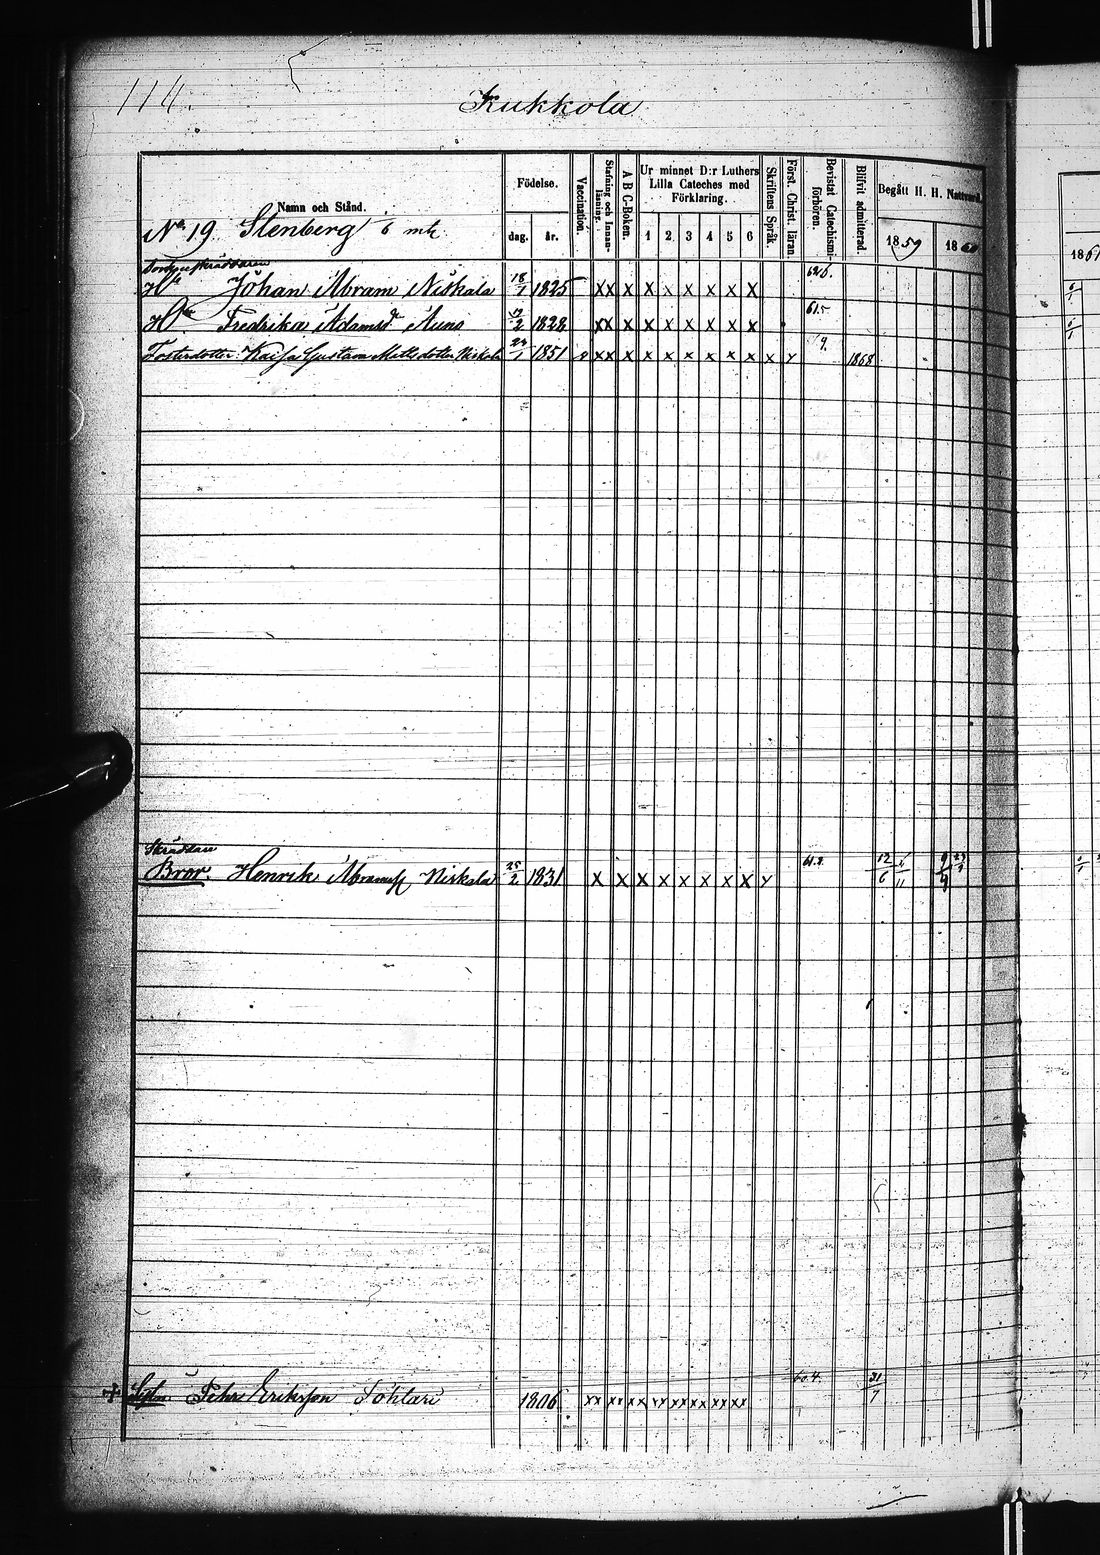 114.
Kukkola
Namn och Stånd.
Födelse.
dag. år.
Vaccination.
Stafning och Innanläsning.
A B C-Boken.
Ur minnet D:r Luthers Lilla Cateches med Förklaring.
1 2 3 4 5 6
Skriftens Språk
Först. Christ. läran
Bevistat Catechismi-förhören.
Blifvit admitterad.
Begått H. H. Nattvard.
1859 1860
186
No 19 Stenberg 6 mtl
Johan Abram Niskala 18/1 1825 xx x x x x x x x
Fredrika Adamsd Auno 1828 xx x x x x x x x 61.5
Fosterdotter Kaisa Gustava Matsdotter Niskala 1851 xx x x x x x x x x 9. 1868
Skräddare
Bror. Henrik Abramss Niskala 25/2 1831 x x x x x x x x 61.2. 12/6
Pehr Eriksson 1806 xx xx xx xx xx xx xx xx 60.4. 31/7